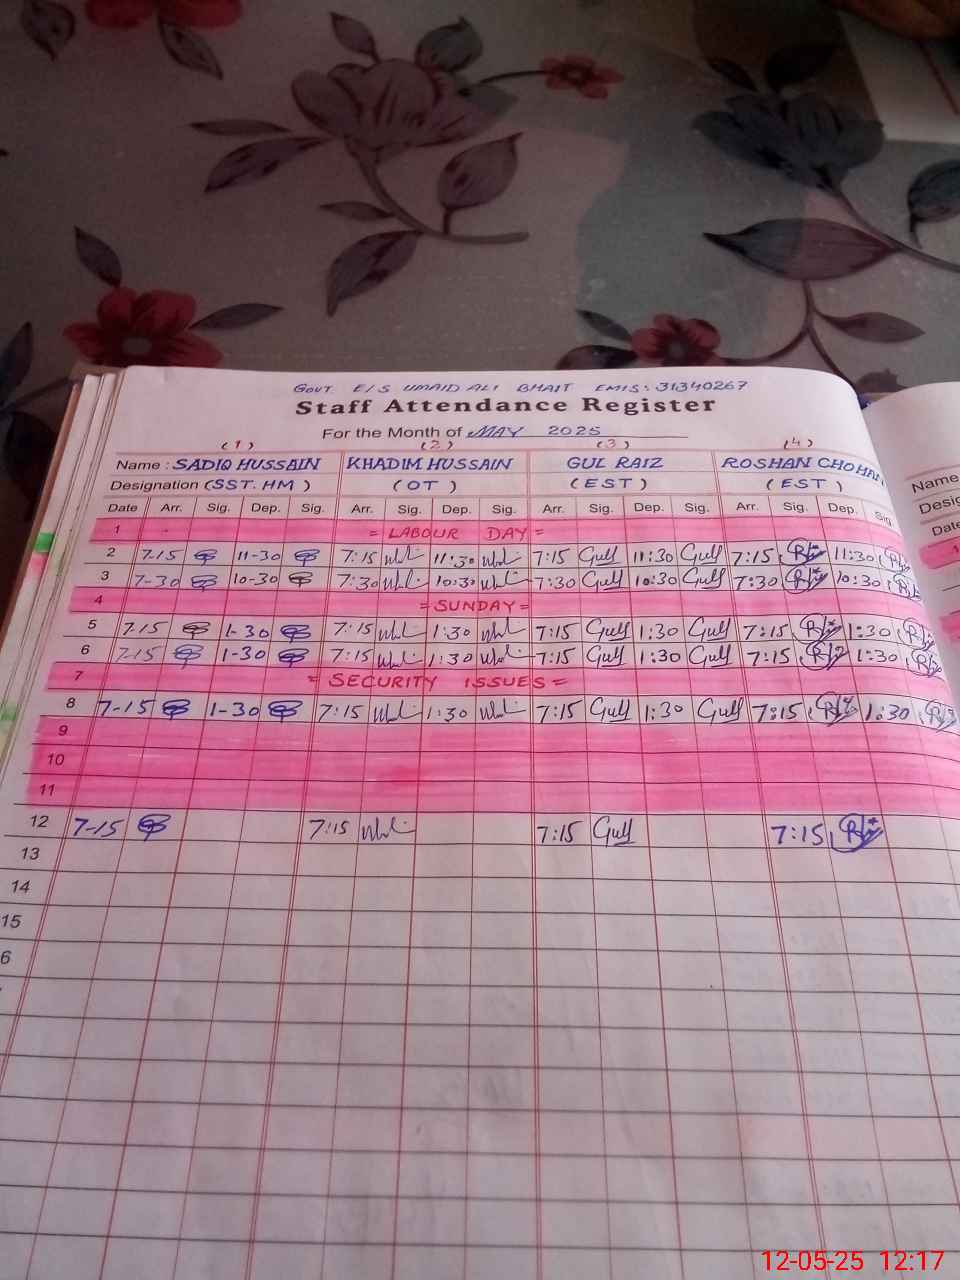 GOVT. E/S UMAID ALI BHAIT EMIS: 31340267
Staff Attendance Register
For the Month of MAY 2025
(1) (2) (3) (4)
Name : SADIQ HUSSAIN KHADIM HUSSAIN GUL RAIZ ROSHAN CHOHAN Name
Designation (SST. HM) (OT) (EST) (EST)
Date Arr. Sig. Dep. Sig. Arr. Sig. Dep. Sig. Arr. Sig. Dep. Sig. Arr. Sig. Dep. Sig. Date
1 = LABOUR DAY =
2 7-15 11-30 7:15 11:30 7:15 Gull 11:30 Gull 7:15 11:30
3 7-30 10-30 7:30 10:30 7:30 Gull 10:30 Gull 7:30 10:30
4 = SUNDAY =
5 7-15 1-30 7:15 1:30 7:15 Gull 1:30 Gull 7:15 1:30
6 7-15 1-30 7:15 1:30 7:15 Gull 1:30 Gull 7:15 1:30
7 = SECURITY ISSUES =
8 7-15 1-30 7:15 1:30 7:15 Gull 1:30 Gull 7:15 1:30
9
10
11
12 7-15 7:15 7:15 Gull 7:15
13
14
15
6
12-05-25 12:17